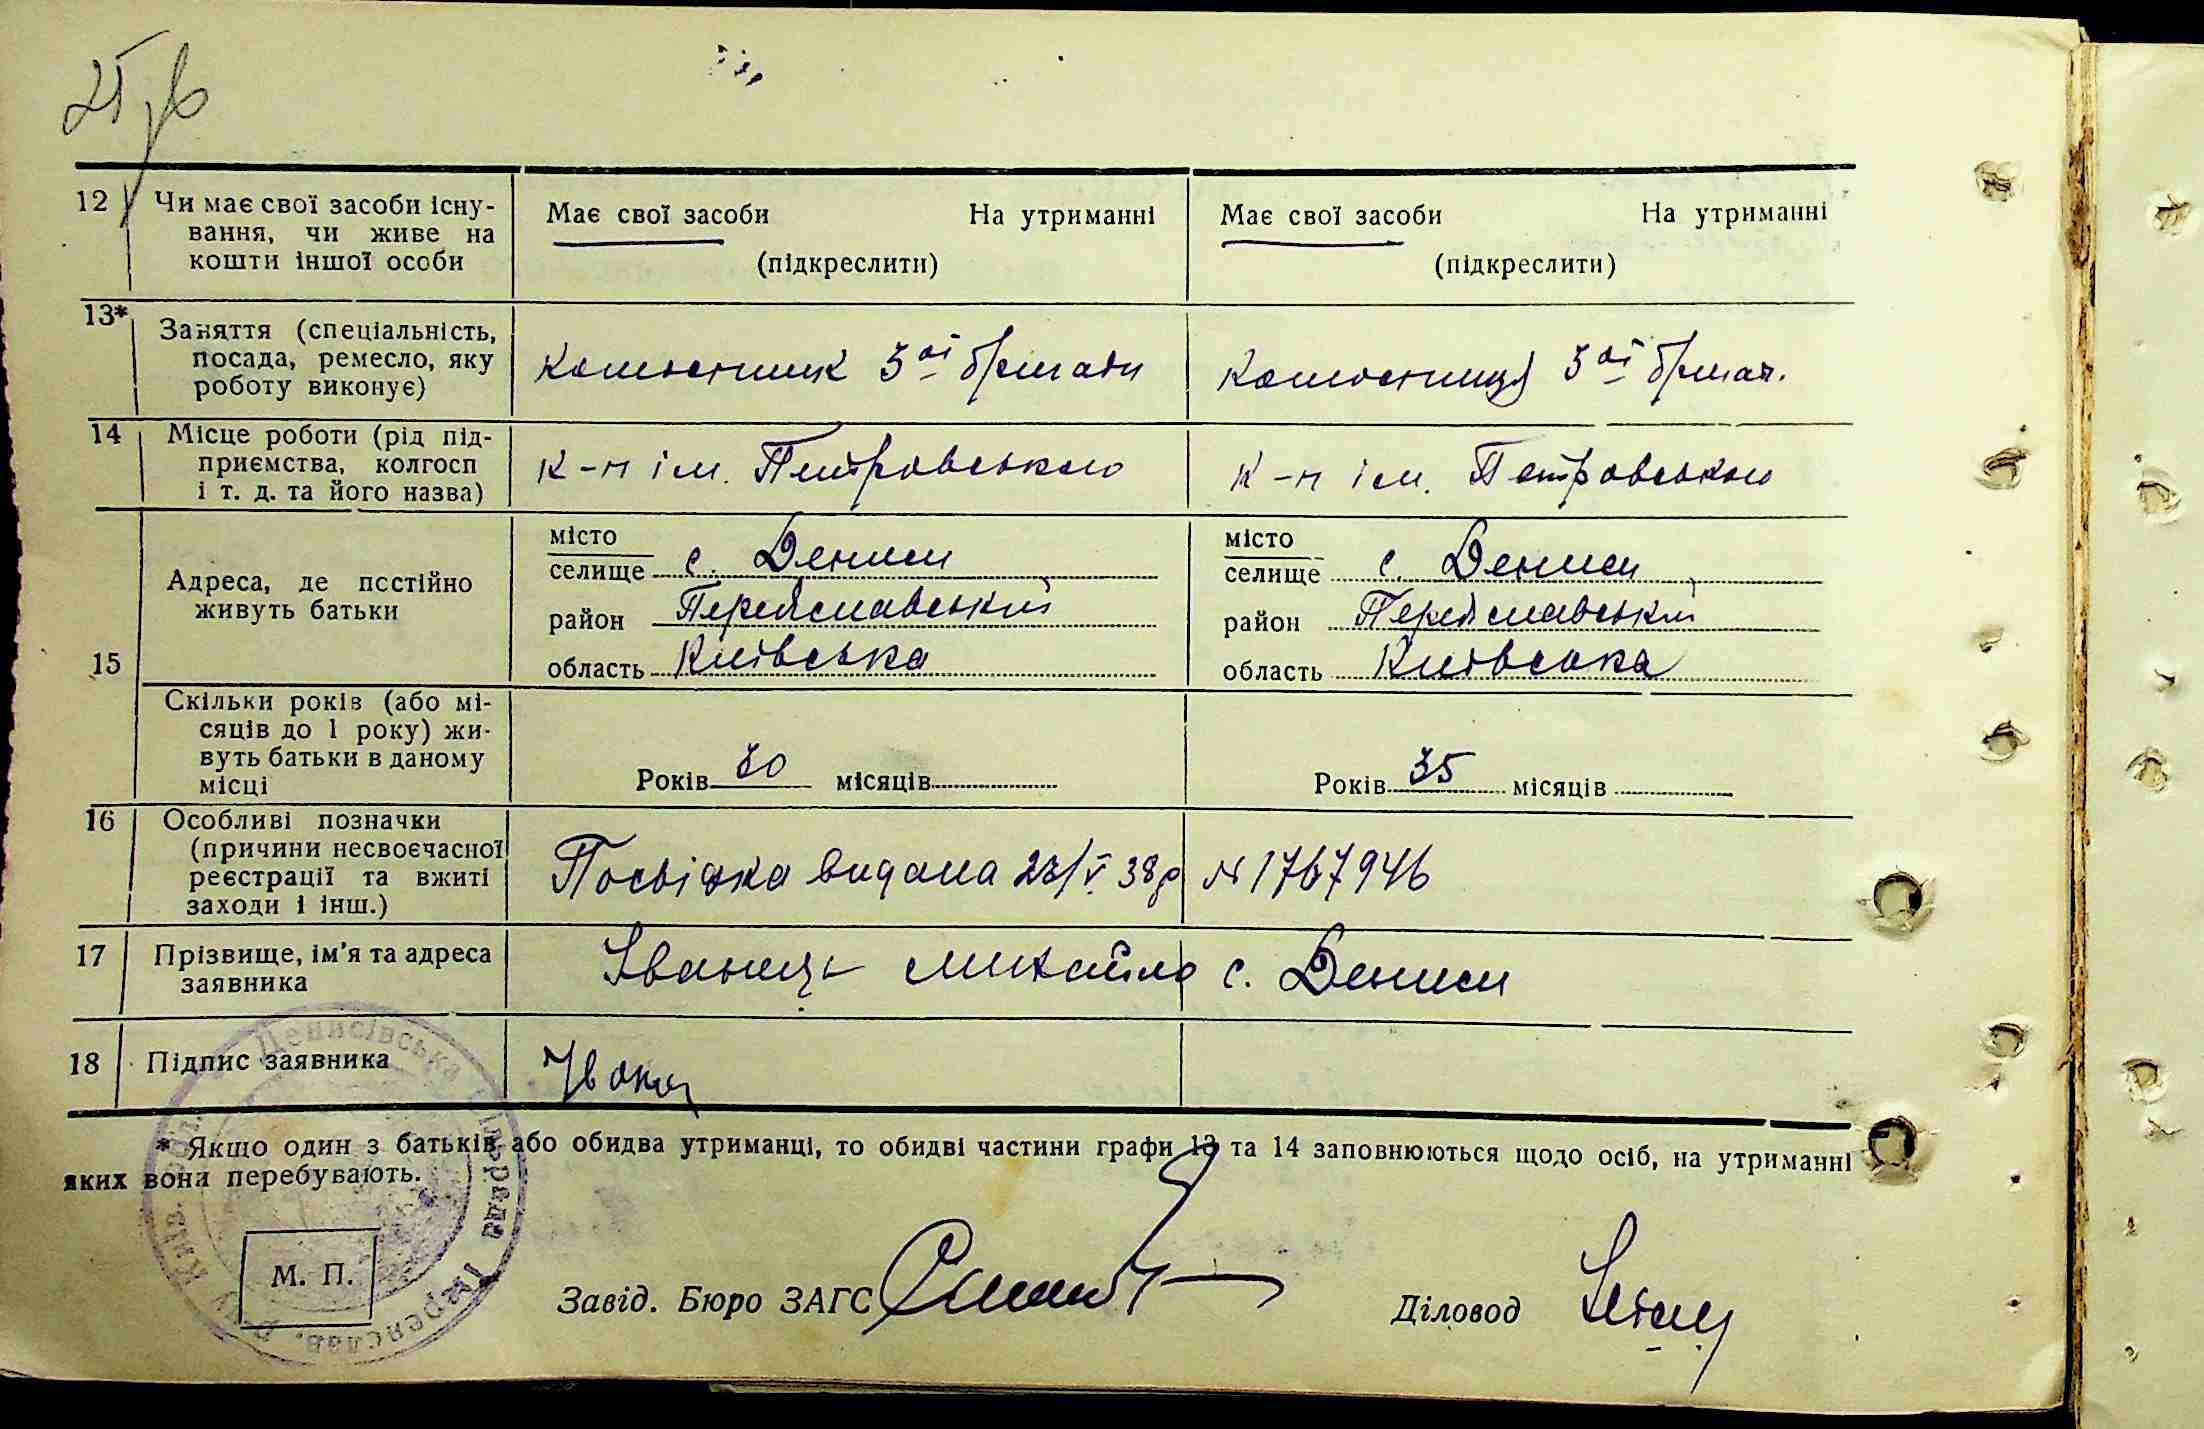 12 Чи має свої засоби існу-
вання, чи живе на
кошти іншої особи
Має свої засоби На утриманні
(підкреслити)
Має свої засоби На утриманні
(підкреслити)
13* Заняття (спеціальність,
посада, ремесло, яку
роботу виконує)
3ої бригади
3ої бригад.
14 Місце роботи (рід під-
приємства, колгосп
і т. д. та його назва)
к-п ім. Петровського
к-п ім. Петровського
15 Адреса, де постійно
живуть батьки
місто
селище с. Дениси
район Переяславський
область Київська
місто
селище с. Дениси
район Переяславський
область Київська
Скільки років (або мі-
сяців до 1 року) жи-
вуть батьки в даному
місці
Років 30 місяців
Років 35 місяців
16 Особливі позначки
(причини несвоєчасної
реєстрації та вжиті
заходи і інш.)
Посвідка видана 23/V 38р № 1767946
17 Прізвище, ім'я та адреса
заявника
Іванець Михайло с. Дениси
18 Підпис заявника
Іванец
* Якщо один з батьків або обидва утриманці, то обидві частини графи 13 та 14 заповнюються щодо осіб, на утриманні
яких вони перебувають.
Денисівська сільрада Переяслав. р-ну Київ. обл.
М. П.
Завід. Бюро ЗАГС
Діловод